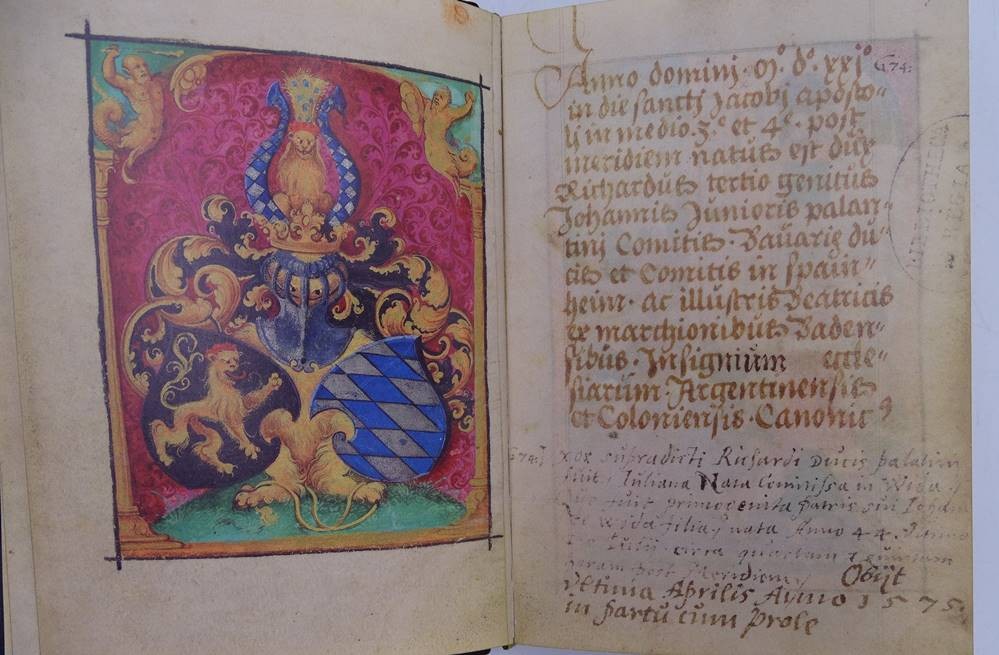 Anno domini · M° · d° · xxj° 174:
in die sancti Jacobi aposto"
li in medio · 3 · e et 4 e · post
meridiem natus est dux
Richardus tertio genitus
Johannis Junioris palan"
tini Comitis · Bavarie du"
cis et Comitis in spain"
heim · ac illustris Beatricis
ex marchionibus Baden"
sibus · Insignium eccle"
siarum · Argentinensis
et Coloniensis · Canonic9
174: Vxor supradicti Richardi Ducis palatini
fuit Iuliana Nata Comitissa in Wida
fuit primogenita patris sui Iohan
Wida filia, nata Anno 44
Iulii circa quartam
horam post Meridiem, Obijt
Vltima Aprilis Anno 1575.
in partu cum prole
BIBLIOTHECA REGIA